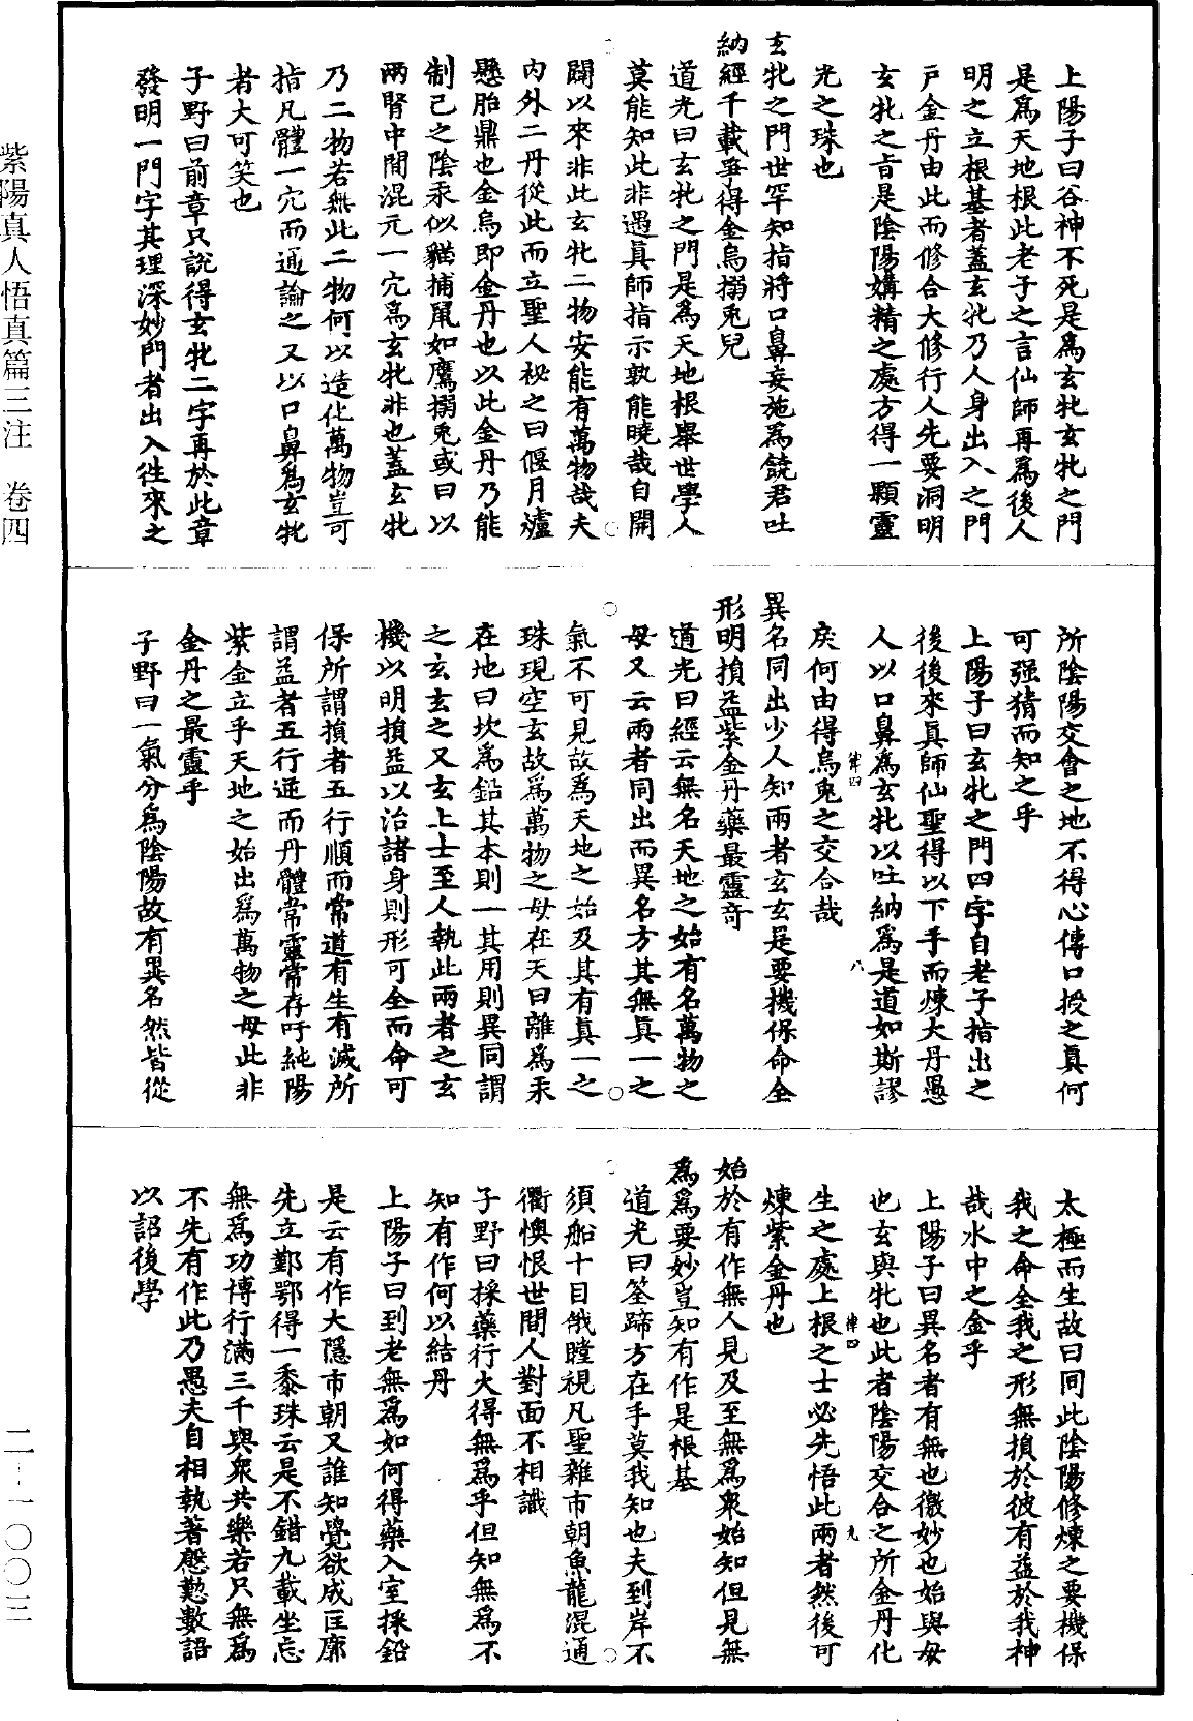 上陽子曰谷神不死是爲玄牝玄牝之門
是爲天地根此老子之言仙師再爲後人
明之立根基者蓋玄牝乃人身出入之門
戸金丹由此而修合大修行人先要洞明
玄牝之旨是陰陽媾精之處方得一顆靈
光之珠也
玄牝之門世罕知指將口鼻妄施爲饒君吐
納經千載爭得金烏搦兎兒
道光曰玄牝之門是爲天地根舉世學人
莫能知此非遇眞師指示孰能曉哉自開
闢以來非此玄牝二物安能有萬物哉夫
内外二丹從此而立聖人祕之曰偃月爐
懸胎鼎也金烏即金丹也以此金丹乃能
制己之陰汞似貓捕鼠如鷹搦兎或曰以
兩腎中間混元一穴爲玄牝非也蓋玄牝
乃二物若無此二物何以造化萬物豈可
指凡體一穴而通論之又以口鼻爲玄牝
者大可笑也
子野曰前章只説得玄牝二字再於此章
發明一門字其理深妙門者出入往來之
所陰陽交會之地不得心傳口授之眞何
可强猜而知之乎
上陽子曰玄牝之門四字自老子指出之
後後來眞師仙聖得以下手而煉大丹愚
人以口鼻爲玄牝以吐納爲是道如斯謬
律四 八
戾何由得烏兎之交合哉
異名同出少人知兩者玄玄是要機保命全
形明損益紫金丹藥最靈奇
道光曰經云無名天地之始有名萬物之
母又云兩者同出而異名方其無眞一之
氣不可見故爲天地之始及其有眞一之
珠現空玄故爲萬物之母在天曰離爲汞
在地曰坎爲鉛其本則一其用則異同謂
之玄玄之又玄上士至人執此兩者之玄
機以明損益以治諸身則形可全而命可
保所謂損者五行順而常道有生有滅所
謂益者五行逆而丹體常靈常存吁純陽
紫金立乎天地之始出爲萬物之母此非
金丹之最靈乎
子野曰一氣分爲陰陽故有異名然皆從
太極而生故曰同此陰陽修煉之要機保
我之命全我之形無損於彼有益於我神
哉水中之金乎
上陽子曰異名者有無也徼妙也始與母
也玄與牝也此者陰陽交合之所金丹化
生之處上根之士必先悟此兩者然後可
律四 九
煉紫金丹也
始於有作無人見及至無爲衆始知但見無
爲爲要妙豈知有作是根基
道光曰筌蹄方在手莫我知也夫到岸不
須船十目俄瞠視凡聖雜市朝魚龍混通
衢懊恨世間人對面不相識
子野曰採藥行火得無爲乎但知無爲不
知有作何以結丹
上陽子曰到老無爲如何得藥入室採鉛
是云有作大隱市朝又誰知覺欲成匡廓
先立鄞鄂得一黍珠云是不錯九載坐忘
無爲功博行滿三千與衆共樂若只無爲
不先有作此乃愚夫自相執著慇懃數語
以詔後學
紫陽真人悟真篇三注 卷四
二-一〇〇三